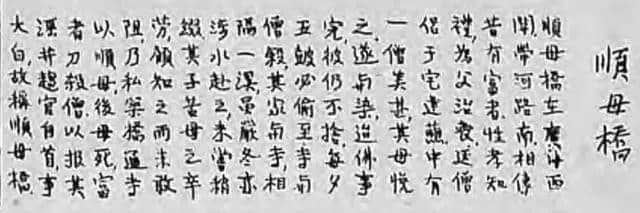 順母橋
順母橋在廣海西
閘帶河路南,相傳
昔有富者,性孝知
禮,為父治喪,延僧
侶于宅建醮,中有
一僧美甚,其母悦
之,遂与染,迨佛事
完,彼仍不捨,每夕
五鼓必偷至寺,与
僧其家与寺,相
隔一溪,虽嚴冬亦
涉水赴之,未嘗稍
綴,其子苦母之辛
劳,顧知之而未敢
阻,乃私築橋通寺
以順母,後母死,富
者刀殺僧,以报其
井趨官自首,事
大白,故稱順母橋.